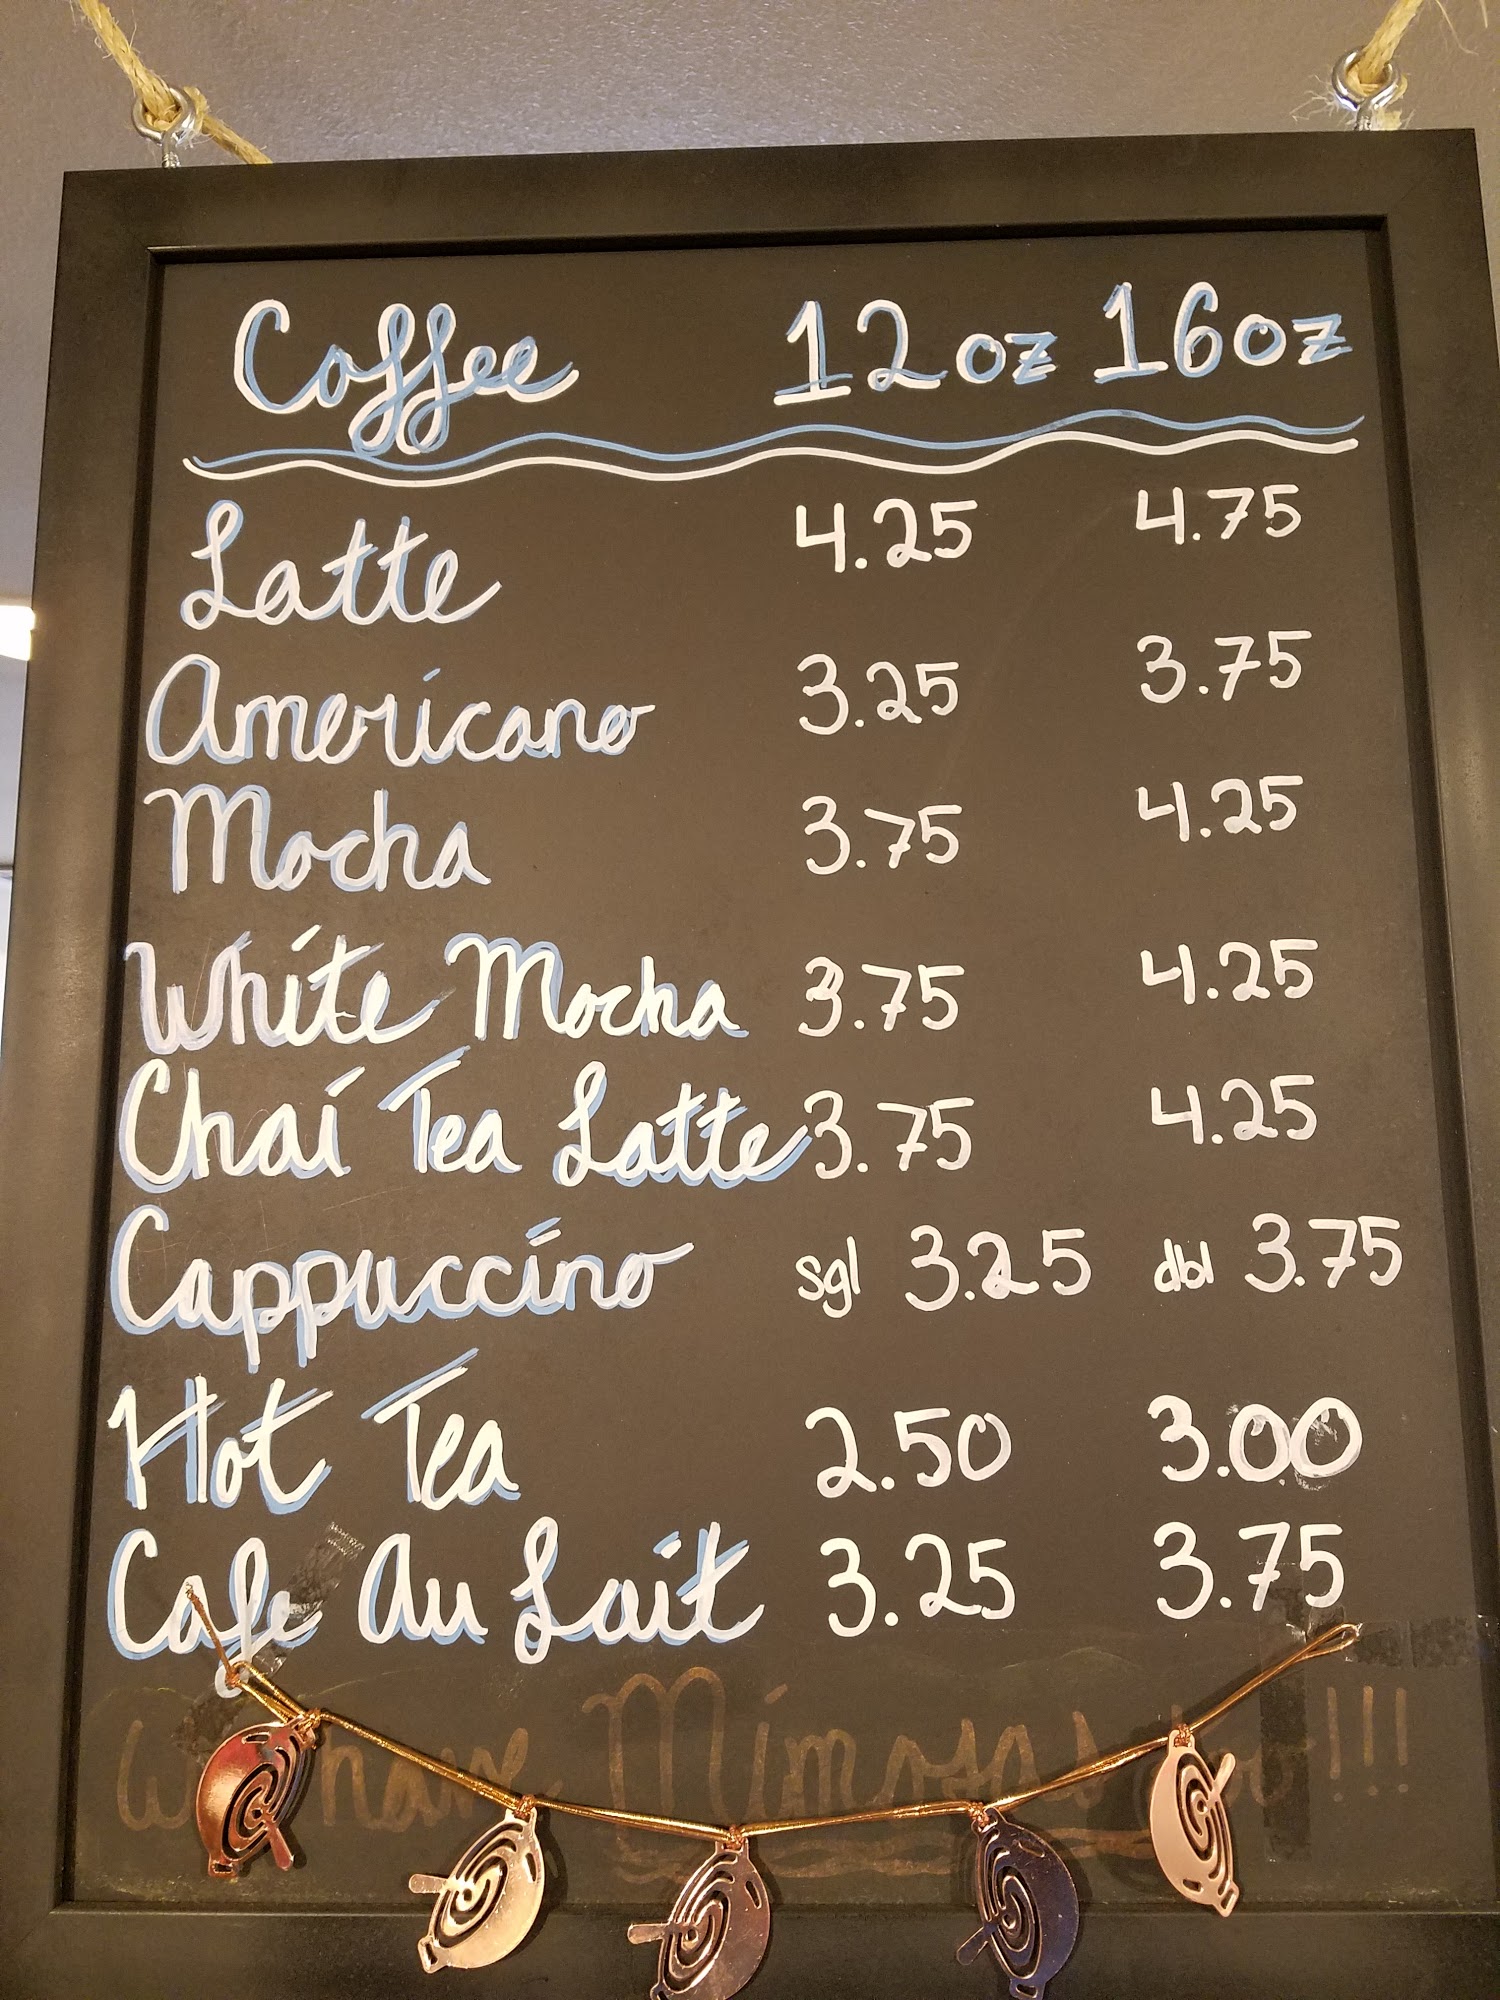 Coffee 12oz 16oz
Latte 4.25 4.75
Americano 3.25 3.75
Mocha 3.75 4.25
White Mocha 3.75 4.25
Chai Tea Latte 3.75 4.25
Cappuccino sgl 3.25 dbl 3.75
Hot Tea 2.50 3.00
Cafe Au Lait 3.25 3.75
have Mimosas !!!